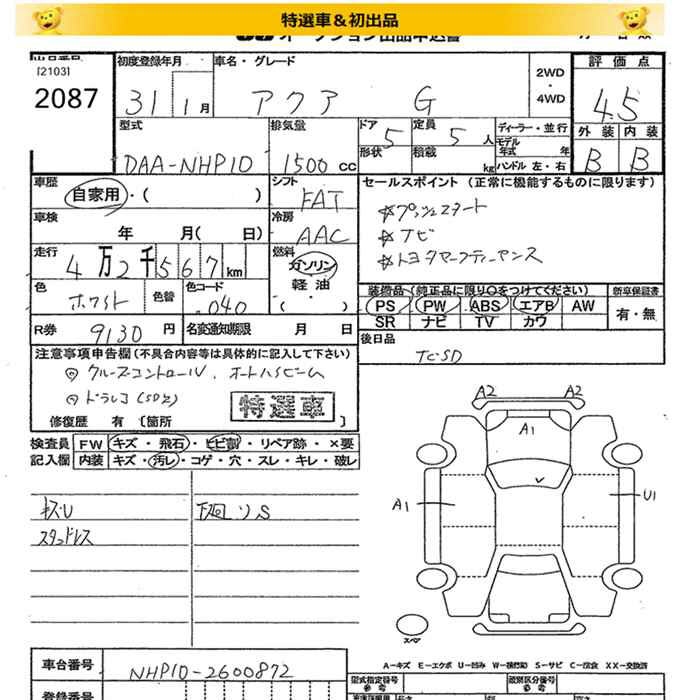 特選車＆初出品
オークション出品申込書
出品番号 初度登録年月 車名・グレード 2WD・4WD 評価点
[2103]
2087 31 1月 アクア G 4.5
型式 排気量 ドア 定員 ディーラー・並行 外装 内装
DAA-NHP10 1500cc 5 5人 モデル年式 年 B B
形状 積載 kg ハンドル 左・右
車歴 シフト セールスポイント（正常に機能するものに限ります）
自家用・( ) FAT ☆プッシュスタート
車検 冷房 ☆ナビ
年 月( 日) AAC ☆トヨタセーフティーセンス
走行 燃料
4万2千567km ガソリン・軽油
色 色替 色コード 装備品（純正品に限り○をつけてください） 新車保証書
ホワイト ( ) 040 PS PW ABS エアB AW 有・無
SR ナビ TV カワ
R券 9130円 名変通知期限 月 日 後日品
注意事項申告欄（不具合内容等は具体的に記入して下さい） TCSD
◎クルーズコントロール、オートハイビーム
◎ドラレコ（SD欠）
特選車
修復歴 有 〔箇所 〕
検査員 FW キズ・飛石・ヒビ割・リペア跡・×要
記入欄 内装 キズ・汚レ・コゲ・穴・スレ・キレ・破レ
キズU 下廻りS
スタッドレス
A2 A2
A1
A1 U1
スペア
A－キズ E－エクボ U－凹み W－補修跡 S－サビ C－腐食 XX－交換済
車台番号 NHP10-2600872
型式指定番号 類別区分番号
登録番号